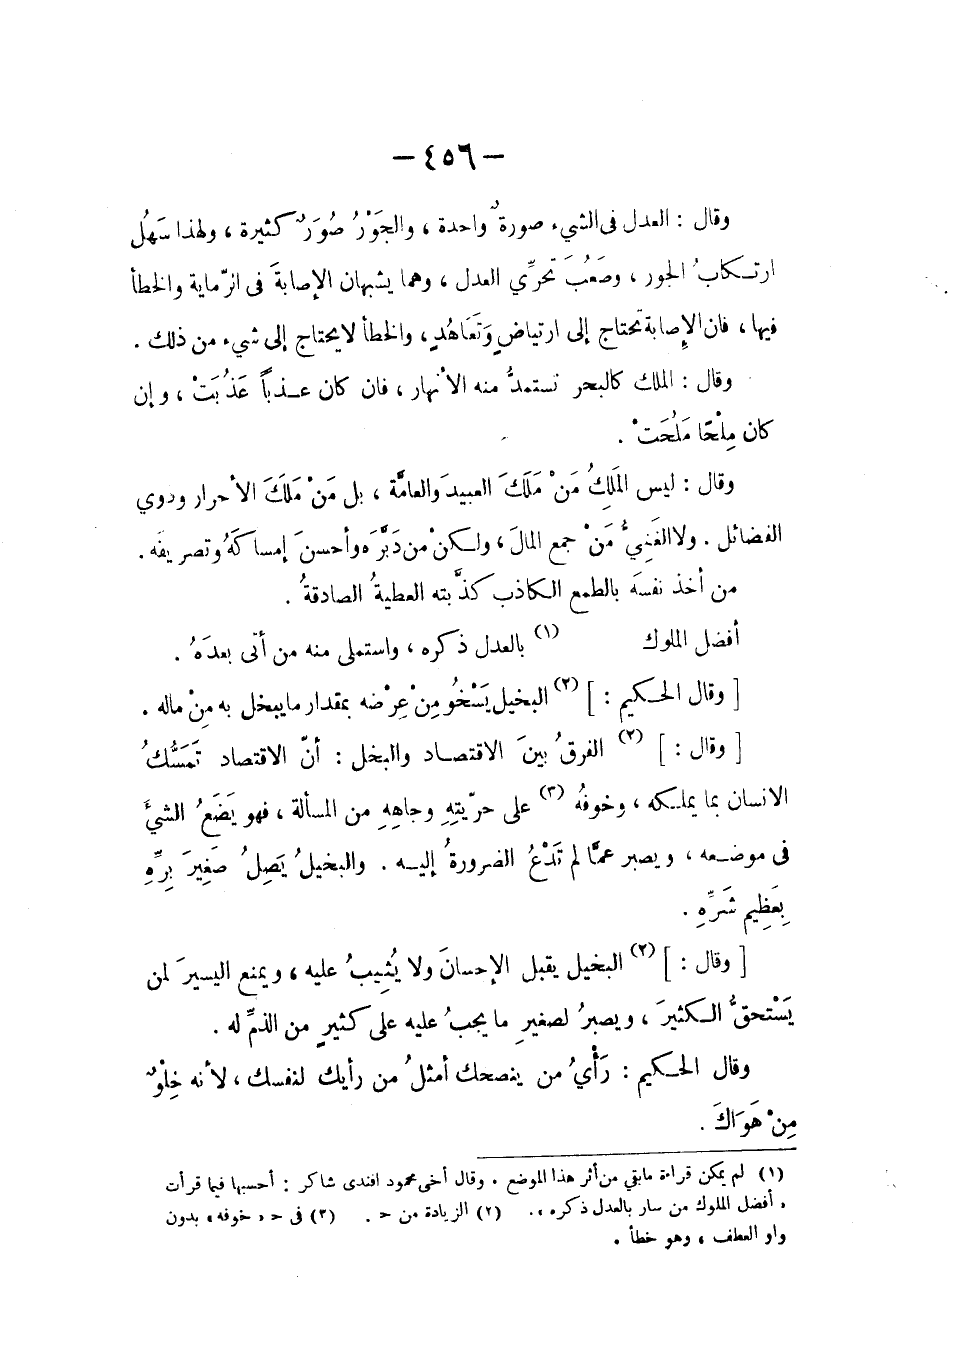 — ٤٥٦ —
وقال : العدل فى الشيء صورةٌ واحدة ، والجَوْرُ صُوَرٌ كثيرة ، ولهذا سَهُل
ارتـكابُ الجور ، وصَعُبَ تحرِّي العدل ، وهما يشبهان الإصابةَ فى الرّماية والخطأ
فيها ، فان الإصابة تحتاج إلى ارتياضٍ وتَعَاهُدٍ، والخطأ لا يحتاج إلى شيء من ذلك .
وقال : الملك كالبحر تستمدُّ منه الأنهار ، فان كان عـذباً عَذُبَتْ ، وإن
كان مِلْحًا مَلُحَتْ .
وقال : ليس المَلِكُ مَنْ مَلَكَ العبيدَ والعامَّة ، بل مَنْ مَلَكَ الأحرار وذوي
الفضائل . ولا الغَنِيُّ مَنْ جمع المالَ ، ولـكنْ من دَبَّرَه وأحسنَ إمساكَهُ وتصريفَه .
من أخذ نفسَه بالطمع الـكاذب كذَّبته العطيةُ الصادقةُ .
أفضل الملوك (١) بالعدل ذكره ، واستملى منه من أتى بعدَهُ .
[ وقال الحـكيم : ] (٢) البخيل يَسْخُو مِنْ عِرْضه بمقدار ما يبخل به مِنْ ماله .
[ وقال : ] (٢) الفرقُ بينَ الاقتصـاد والبخل : أنّ الاقتصاد تَمَسُّكُ
الانسان بما يملـكه ، وخوفُه (٣) على حرّيتِهِ وجاهِهِ من المسألة ، فهو يَضَعُ الشيْءَ
فى موضـعه ، ويصبر عمَّا لم تَدْعُ الضرورةُ إليـه . والبخيلُ يَصِلُ صَغِيرَ بِرِّهِ
بِعَظِيم شَرِّهِ .
[ وقال : ] (٢) البخيل يقبل الإحسانَ ولا يُثِيبُ عليه ، ويمنع اليسيرَ لمن
يَسْتحقُّ الـكثيرَ ، ويصبرُ لصغيرِ ما يجبُ عليه على كثيرٍ من الذمِّ له .
وقال الحـكيم : رَأْيُ من ينصحك أمثلُ من رأيك لنفسك ، لأنه خِلْوٌ
مِنْ هَوَاكَ .
(١) لم يمكن قراءة مابقي من أثر هذا الموضع . وقال أخى محمود افندى شاكر : أحسبها فيما قرأت
« أفضل الملوك من سار بالعدل ذكره » . (٢) الزيادة من ح . (٣) فى ح « خوفه » بدون
واو العطف ، وهو خطأ .